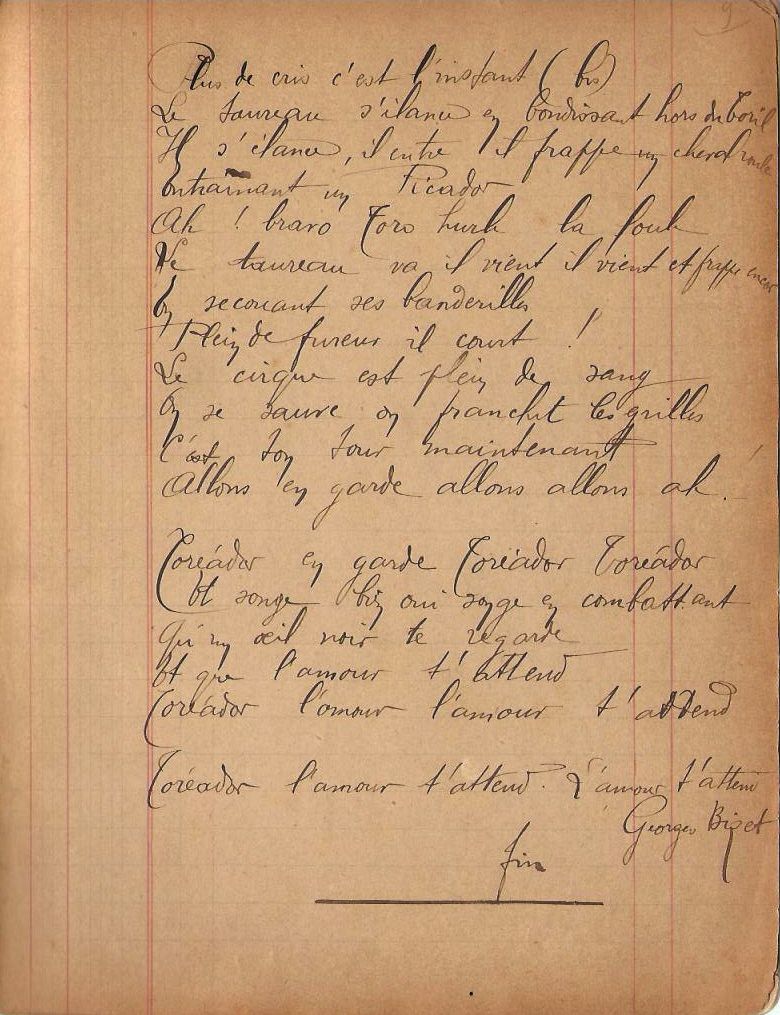 9
Plus de cris c'est l'instant (bis)
Le taureau s'élance en bondissant hors du toril
Il s'élance, il entre il frappe un cheval roule
Entraînant un Picador
Ah ! bravo Toro hurle la foule
Le taureau va il vient il vient et frappe encor
En secouant ses banderilles
Plein de fureur il court !
Le cirque est plein de sang
On se sauve on franchit les grilles
C'est ton tour maintenant
Allons en garde allons allons ah !
Toréador en garde Toréador Toréador
Et songe bien oui songe en combattant
qu'un œil noir te regarde
Et que l'amour t'attend
Toréador l'amour l'amour t'attend
Toréador l'amour t'attend. L'amour t'attend
Georges Bizet
fin